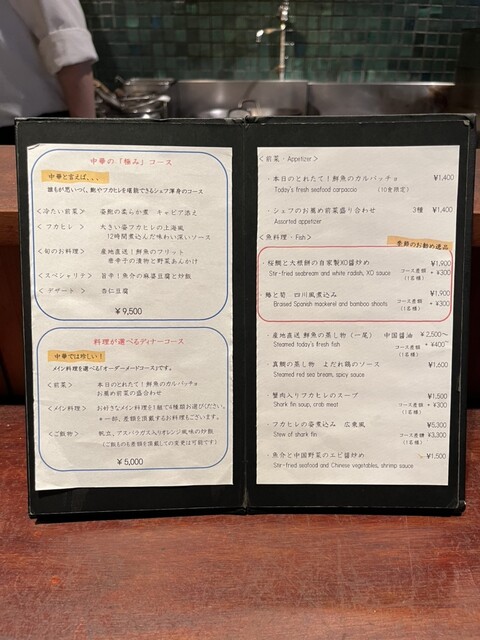 中華の「極み」コース
中華と言えば、、、
誰もが思いつく、鮑やフカヒレを堪能できるシェフ渾身のコース
<冷たい前菜> 姿鮑の柔らか煮 キャビア添え
<フカヒレ> 大きい姿フカヒレの上海風
12時間煮込んだ味わい深いソース
<旬のお料理> 産地直送!鮮魚のフリット
青唐辛子の漬物と野菜あんかけ
<スペシャリテ> 旨辛!魚介の麻婆豆腐と炒飯
<デザート> 杏仁豆腐
¥9,500
料理が選べるディナーコース
中華では珍しい!
メイン料理を選べる「オーダーメードコース」です。
<前菜> 本日のとれたて!鮮魚のカルパッチョ
お薦め前菜の盛合わせ
<メイン料理> お好きなメイン料理を1組で4種類お選びください。
+一部、差額を頂戴するお料理もございます。
<ご飯物> 帆立、アスパラガス入りオレンジ風味の炒飯
(ご飯ものも差額を頂戴しての変更は可能です)
¥5,000
<前菜・Appetizer>
・本日のとれたて!鮮魚のカルパッチョ ¥1,400
Today's fresh seafood carpaccio (10食限定)
・シェフのお薦め前菜盛り合わせ 3種 ¥1,400
Assorted appetizer
<魚料理・Fish>
季節のお勧め逸品
・桜鯛と大根餅の自家製XO醤炒め ¥1,900
Stir-fried seabream and white radish, XO sauce コース差額 +¥300
(1名様)
・鰆と筍 四川風煮込み ¥1,900
Braised Spanish mackerel and bamboo shoots コース差額 +¥300
(1名様)
・産地直送 鮮魚の蒸し物(一尾) 中国醤油 ¥2,500~
Steamed today's fresh fish コース差額 +¥400~
(1名様)
・真鯛の蒸し物 よだれ鶏のソース ¥1,600
Steamed red sea bream, spicy sauce
・蟹肉入りフカヒレのスープ ¥1,500
Shark fin soup, crab meat コース差額 +¥300
(1名様)
・フカヒレの姿煮込み 広東風 ¥5,300
Stew of shark fin コース差額 ¥3,300
(1名様)
・魚介と中国野菜のエビ醤炒め ¥1,500
Stir-fried seafood and Chinese vegetables, shrimp sauce